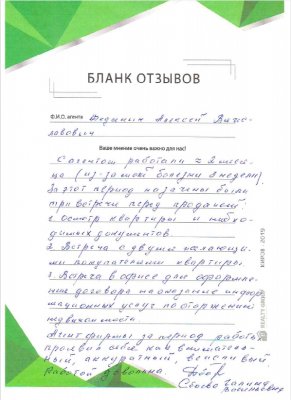 БЛАНК ОТЗЫВОВ
Ф.И.О. агента Алексей Вячес-
лавович
Ваше мнение очень важно для нас!
С агентом работали ≈ 2 меся-
ца (из-за моей болезни 2 недели).
За этот период назначены были
три встречи перед продажей
1. осмотр квартиры и необхо-
димых документов.
2. Встреча с двумя желающи-
ми покупателями квартиры.
3. Встреча в офисе для оформле-
ние договора на оказание инфор-
мационных услуг по отчуждению
недвижимости
Агент фирмы за период работы
проявил себя как вниматель-
ный, аккуратный, вежливый
Работой довольна.
Галина
Васильевна
КИРОВ 2019